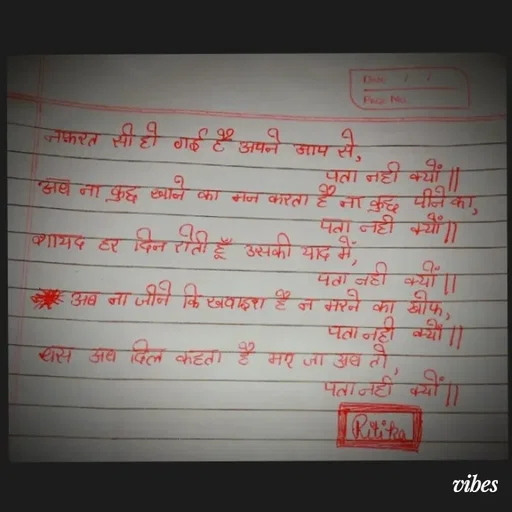 Date / /
Page No.
नफरत सी हो गई है अपने आप से,
पता नही क्यों ||
अब ना कुछ खाने का मन करता है ना कुछ पीने का,
पता नही क्यों ||
शायद हर दिन रोती हूँ उसकी याद में,
पता नही क्यों ||
अब ना जीने कि ख्वाइश है न मरने का खोफ,
पता नही क्यों ||
बस अब दिल कहता है मर जा अब तो,
पता नही क्यों ||
Ritika
vibes